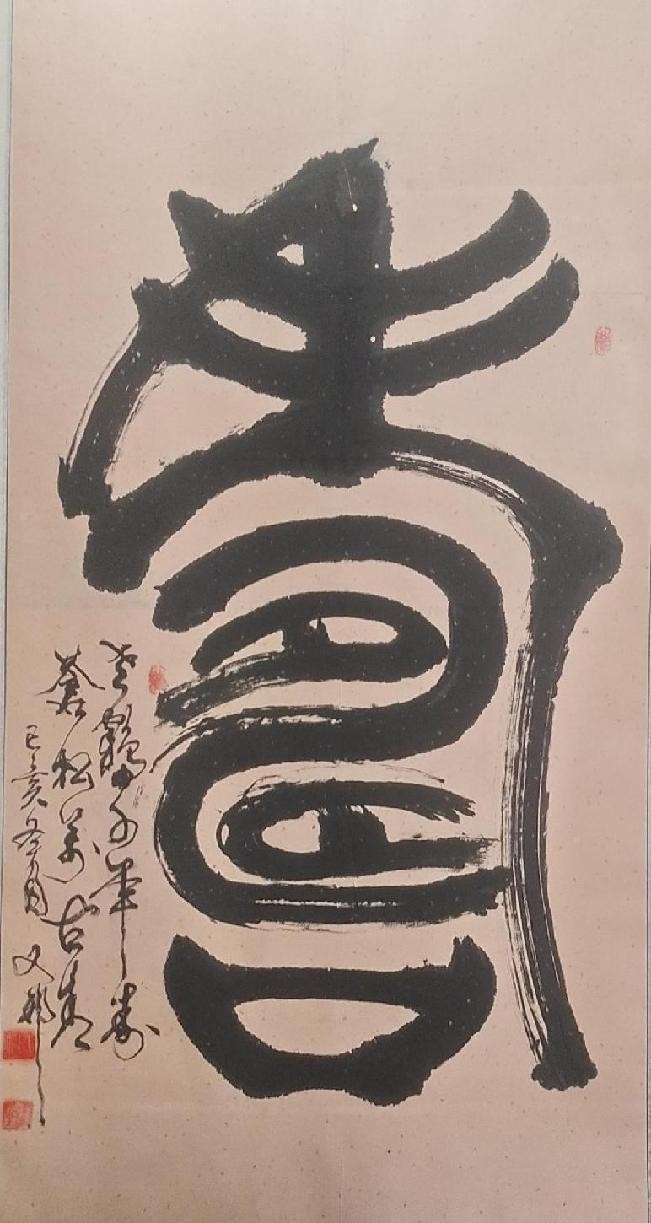 壽
老鶴千年壽
蒼松萬古青
己亥冬月 文